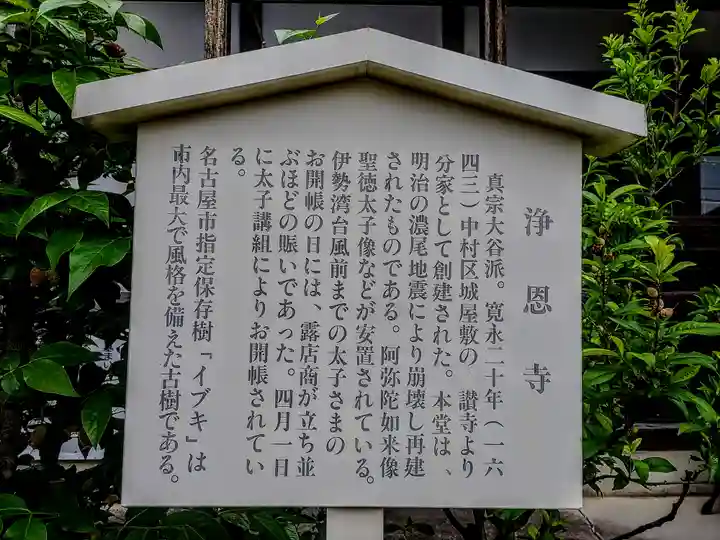 浄恩寺
真宗大谷派。寛永二十年（一六
四三）中村区城屋敷の　讃寺より
分家として創建された。本堂は、
明治の濃尾地震により崩壊し再建
されたものである。阿弥陀如来像
聖徳太子像などが安置されている。
伊勢湾台風前までの太子さまの
お開帳の日には、露店商が立ち並
ぶほどの賑いであった。四月一日
に太子講組によりお開帳されてい
る。
名古屋市指定保存樹「イブキ」は
市内最大で風格を備えた古樹である。